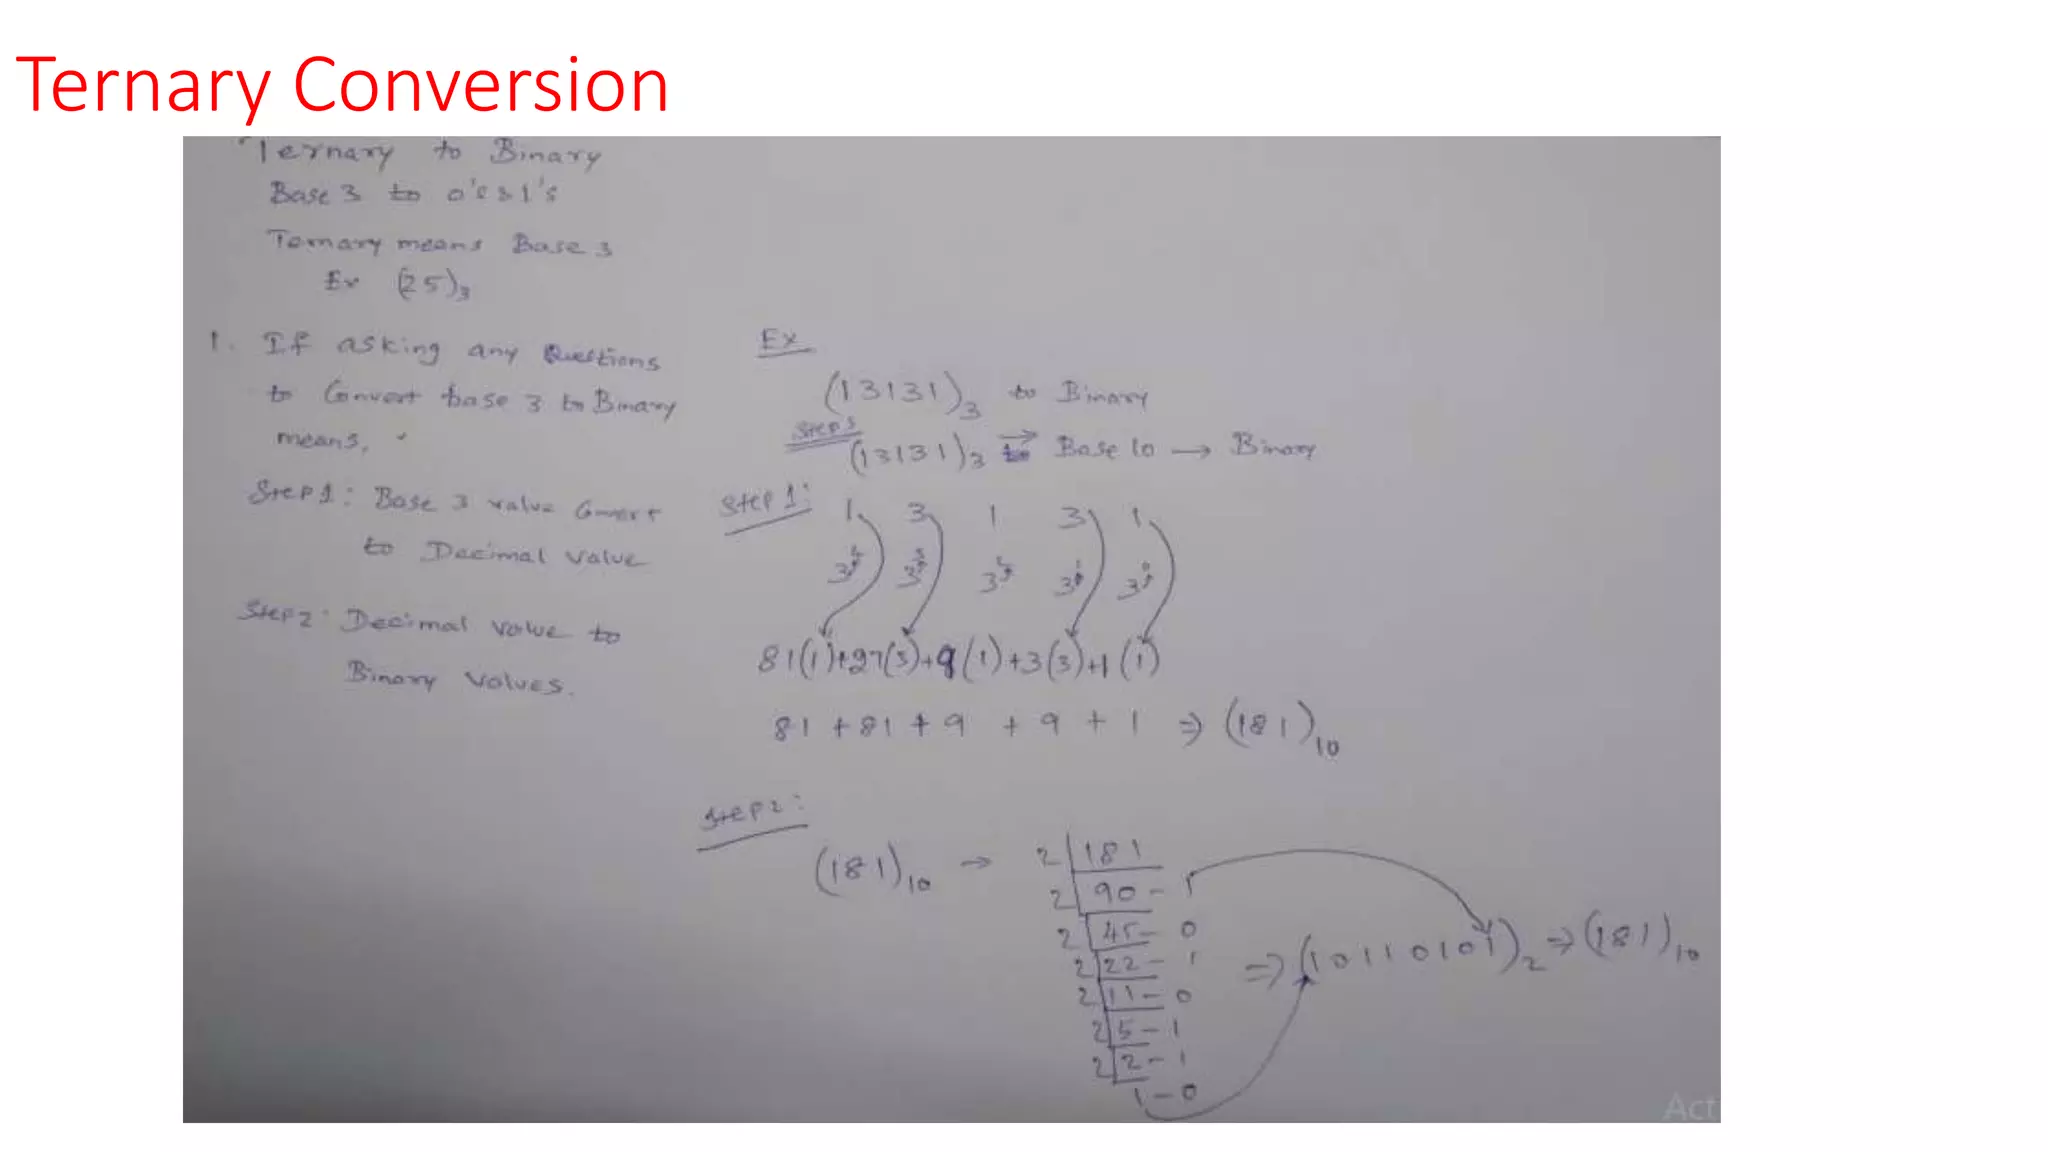 Ternary Conversion
Ternary to Binary
Base 3 to 0's & 1's
Ternary means Base 3
Ex (25)₃
1. If asking any Questions
to Convert base 3 to Binary
means,
Step 1: Base 3 value Convert
to Decimal value
Step 2: Decimal value to
Binary values.
Ex
(13131)₃ to Binary
Steps
(13131)₃ → Base 10 → Binary
Step 1: 1 3 1 3 1
3⁴ 3³ 3² 3¹ 3⁰
81(1)+27(3)+9(1)+3(3)+1(1)
81 + 81 + 9 + 9 + 1 ⇒ (181)₁₀
Step 2:
(181)₁₀ → 2 181
2 90 - 1
2 45 - 0
2 22 - 1
2 11 - 0
2 5 - 1
2 2 - 1
1 - 0
⇒ (10110101)₂ ⇒ (181)₁₀
Act